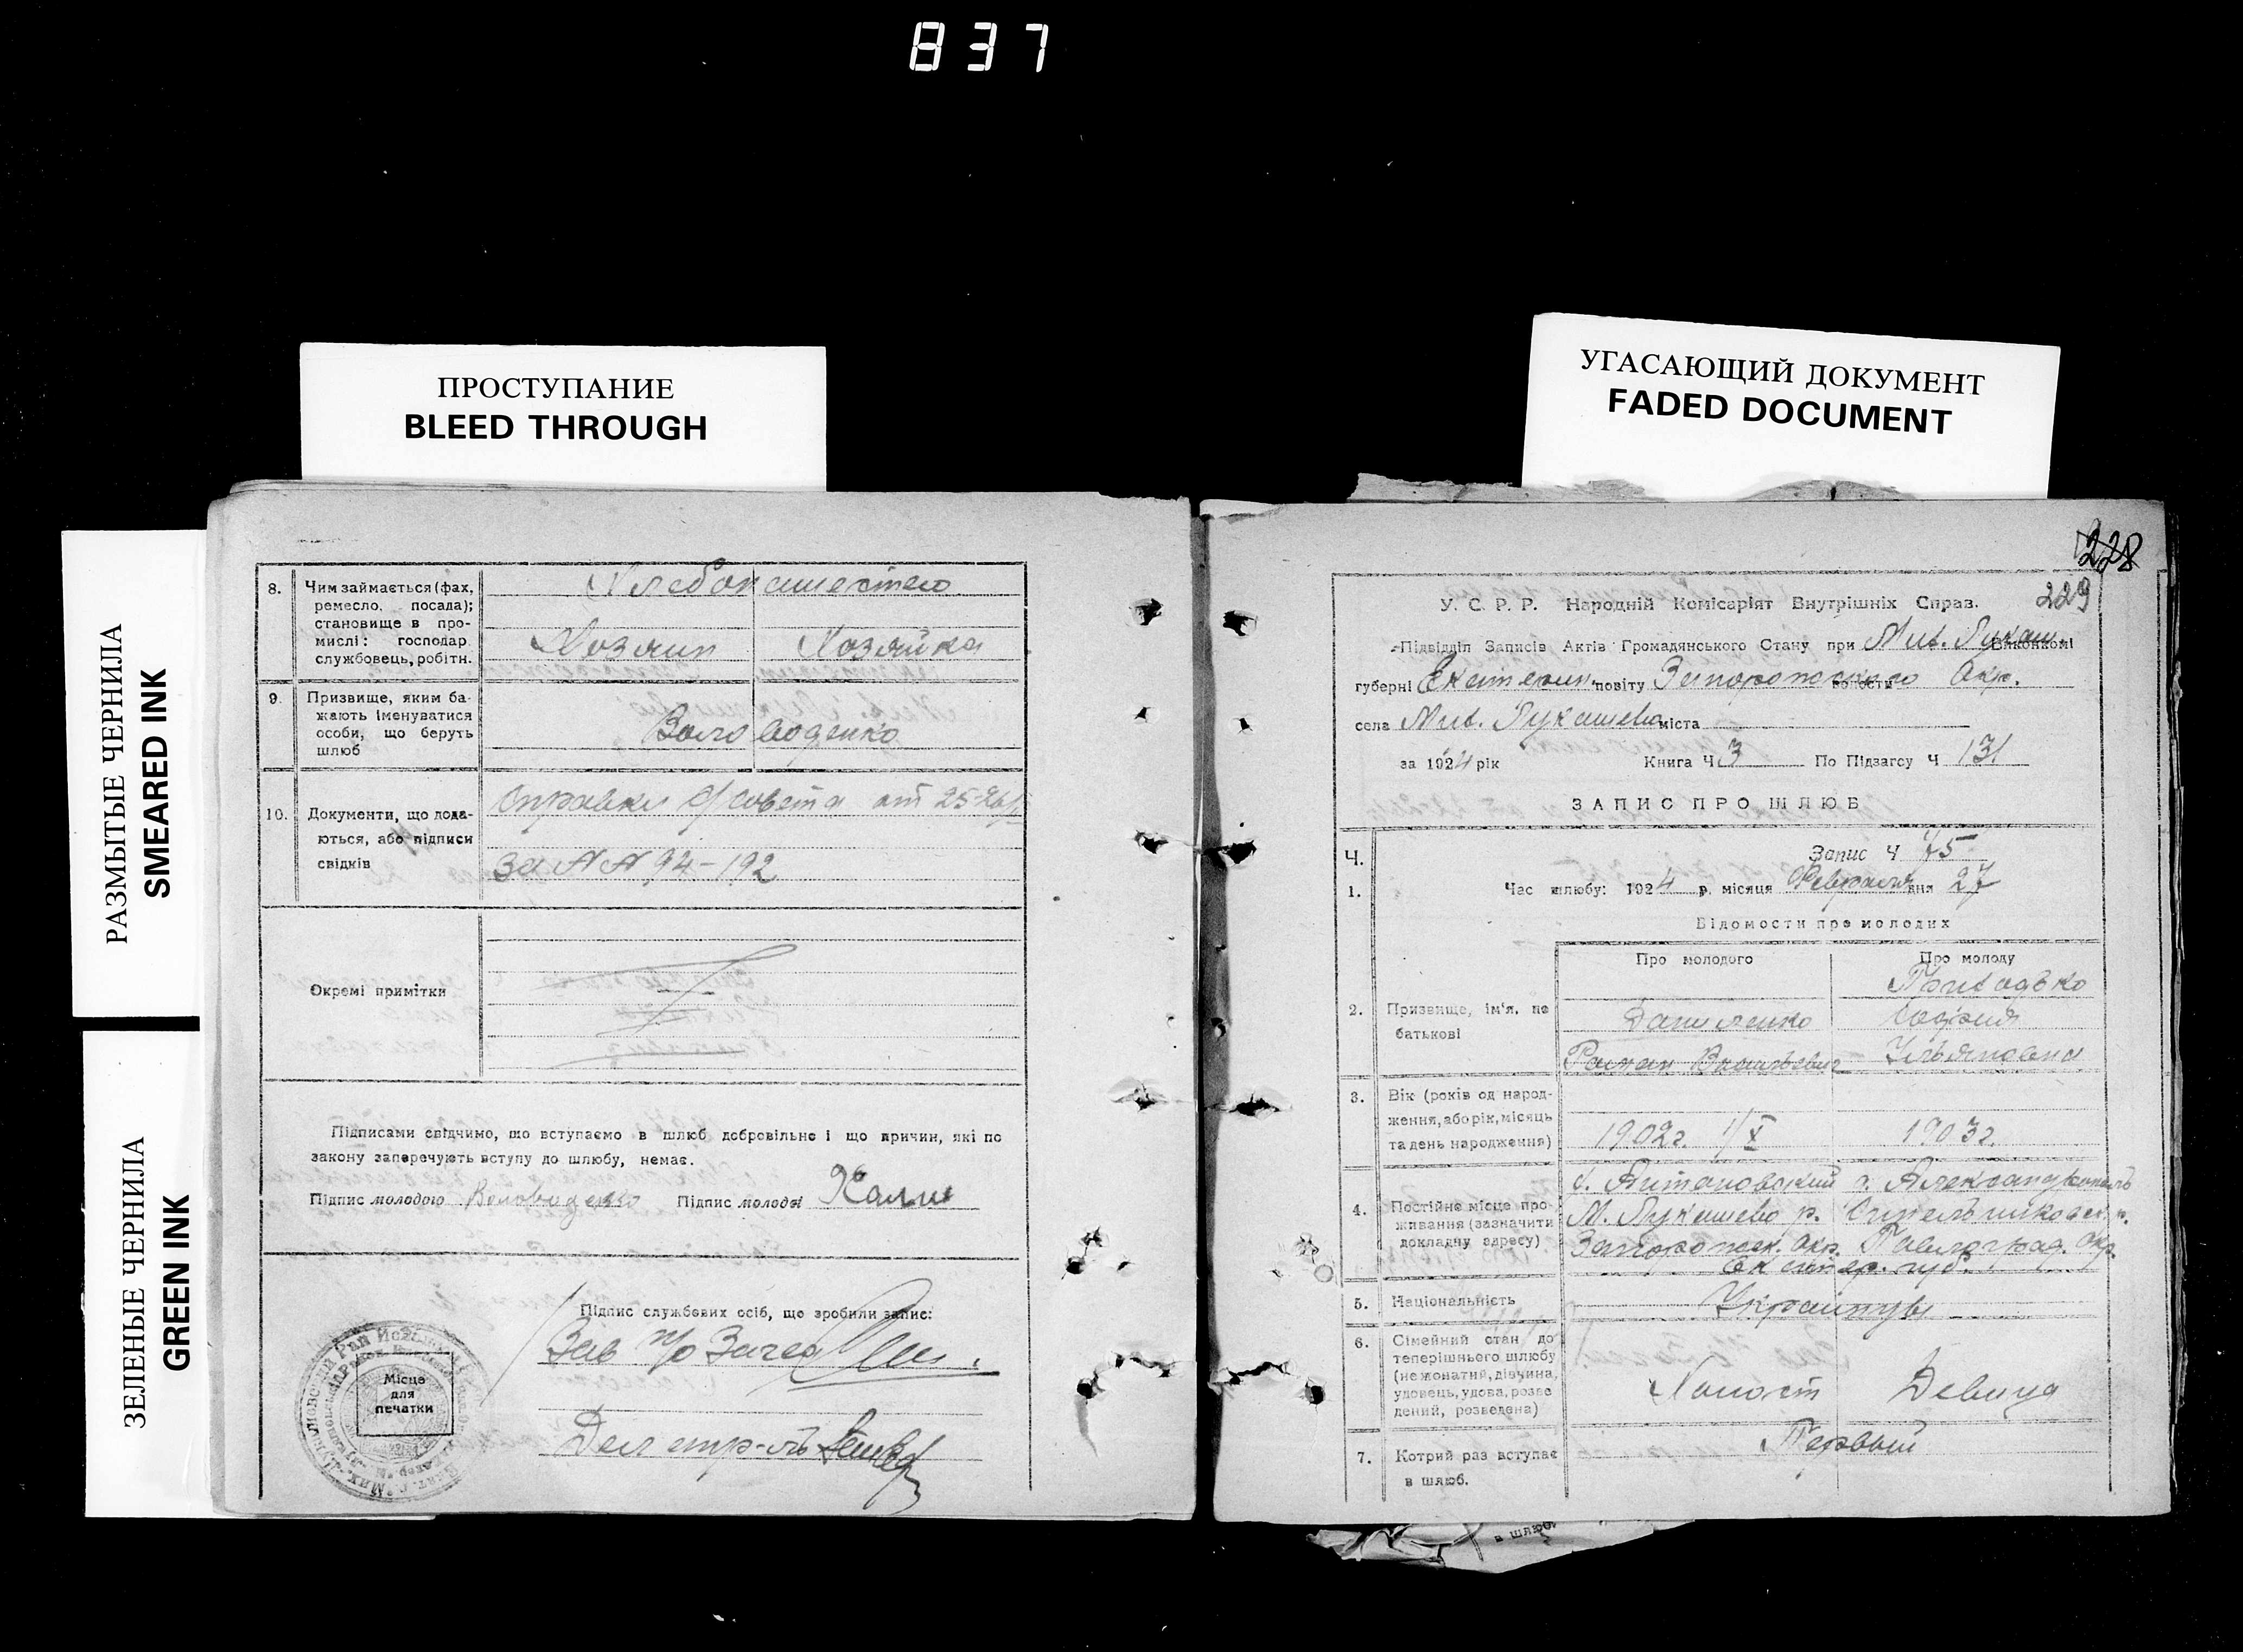 837
ПРОСТУПАНИЕ
BLEED THROUGH
УГАСАЮЩИЙ ДОКУМЕНТ
FADED DOCUMENT
РАЗМЫТЫЕ ЧЕРНИЛА
SMEARED INK
ЗЕЛЕНЫЕ ЧЕРНИЛА
GREEN INK
8. Чим займається (фах, ремесло, посада); становище в про-
мислі: господар, службовець, робітн.
Хлебопашеством
Хозяин Хозяйка
9. Призвище, яким ба-
жають іменуватися
особи, що беруть
шлюб
Воловоденко
10. Документи, що дода-
ються, або підписи
свідків
Справки с/совета от 25-26/
за NN 94-192
Окремі примітки
Підписами свідчимо, що вступаємо в шлюб добровільно і що причин, які по
закону заперечують вступу до шлюбу, немає.
Підпис молодого Воловоденко Підпис молодої
Підпис службових осіб, що зробили запис:
Зав п/о Загса
Місце
для
печатки
228
229
У. С. Р. Р. Народній Комісаріят Внутрішніх Справ.
Підвідділ Записів Актів Громадянського Стану при Мих. Лукаш. Виконкомі
губерні Екатерин. повіту Запорожского волости Окр.
села Мих. Лукашево міста
за 1924 рік Книга Ч 3 По Підзагсу Ч 131
ЗАПИС ПРО ШЛЮБ
Ч. Запис Ч 75
1. Час шлюбу: 1924 р. місяця Февраля дня 27
Відомости про молодих
Про молодого Про молоду
2. Призвище, ім'я, по
батькові
Даниленко
Роман Васильевич
София
Ульяновна
3. Вік (років од народ-
ження, або рік, місяць
та день народження)
1902г. 1/X 1903г.
4. Постійне місце про-
живання (зазначити
докладну адресу)
М. Лукашево р. Синельниковск. р.
Запорожск. Окр. Павлоград. Окр.
Екатер. губ.
5. Національність
Украинцы
6. Сімейний стан до
теперішнього шлюбу
(нежонатий, дівчина,
удовець, удова, розве
дений, розведена)
Холост Девица
7. Котрий раз вступає
в шлюб.
Первый
в шлюб